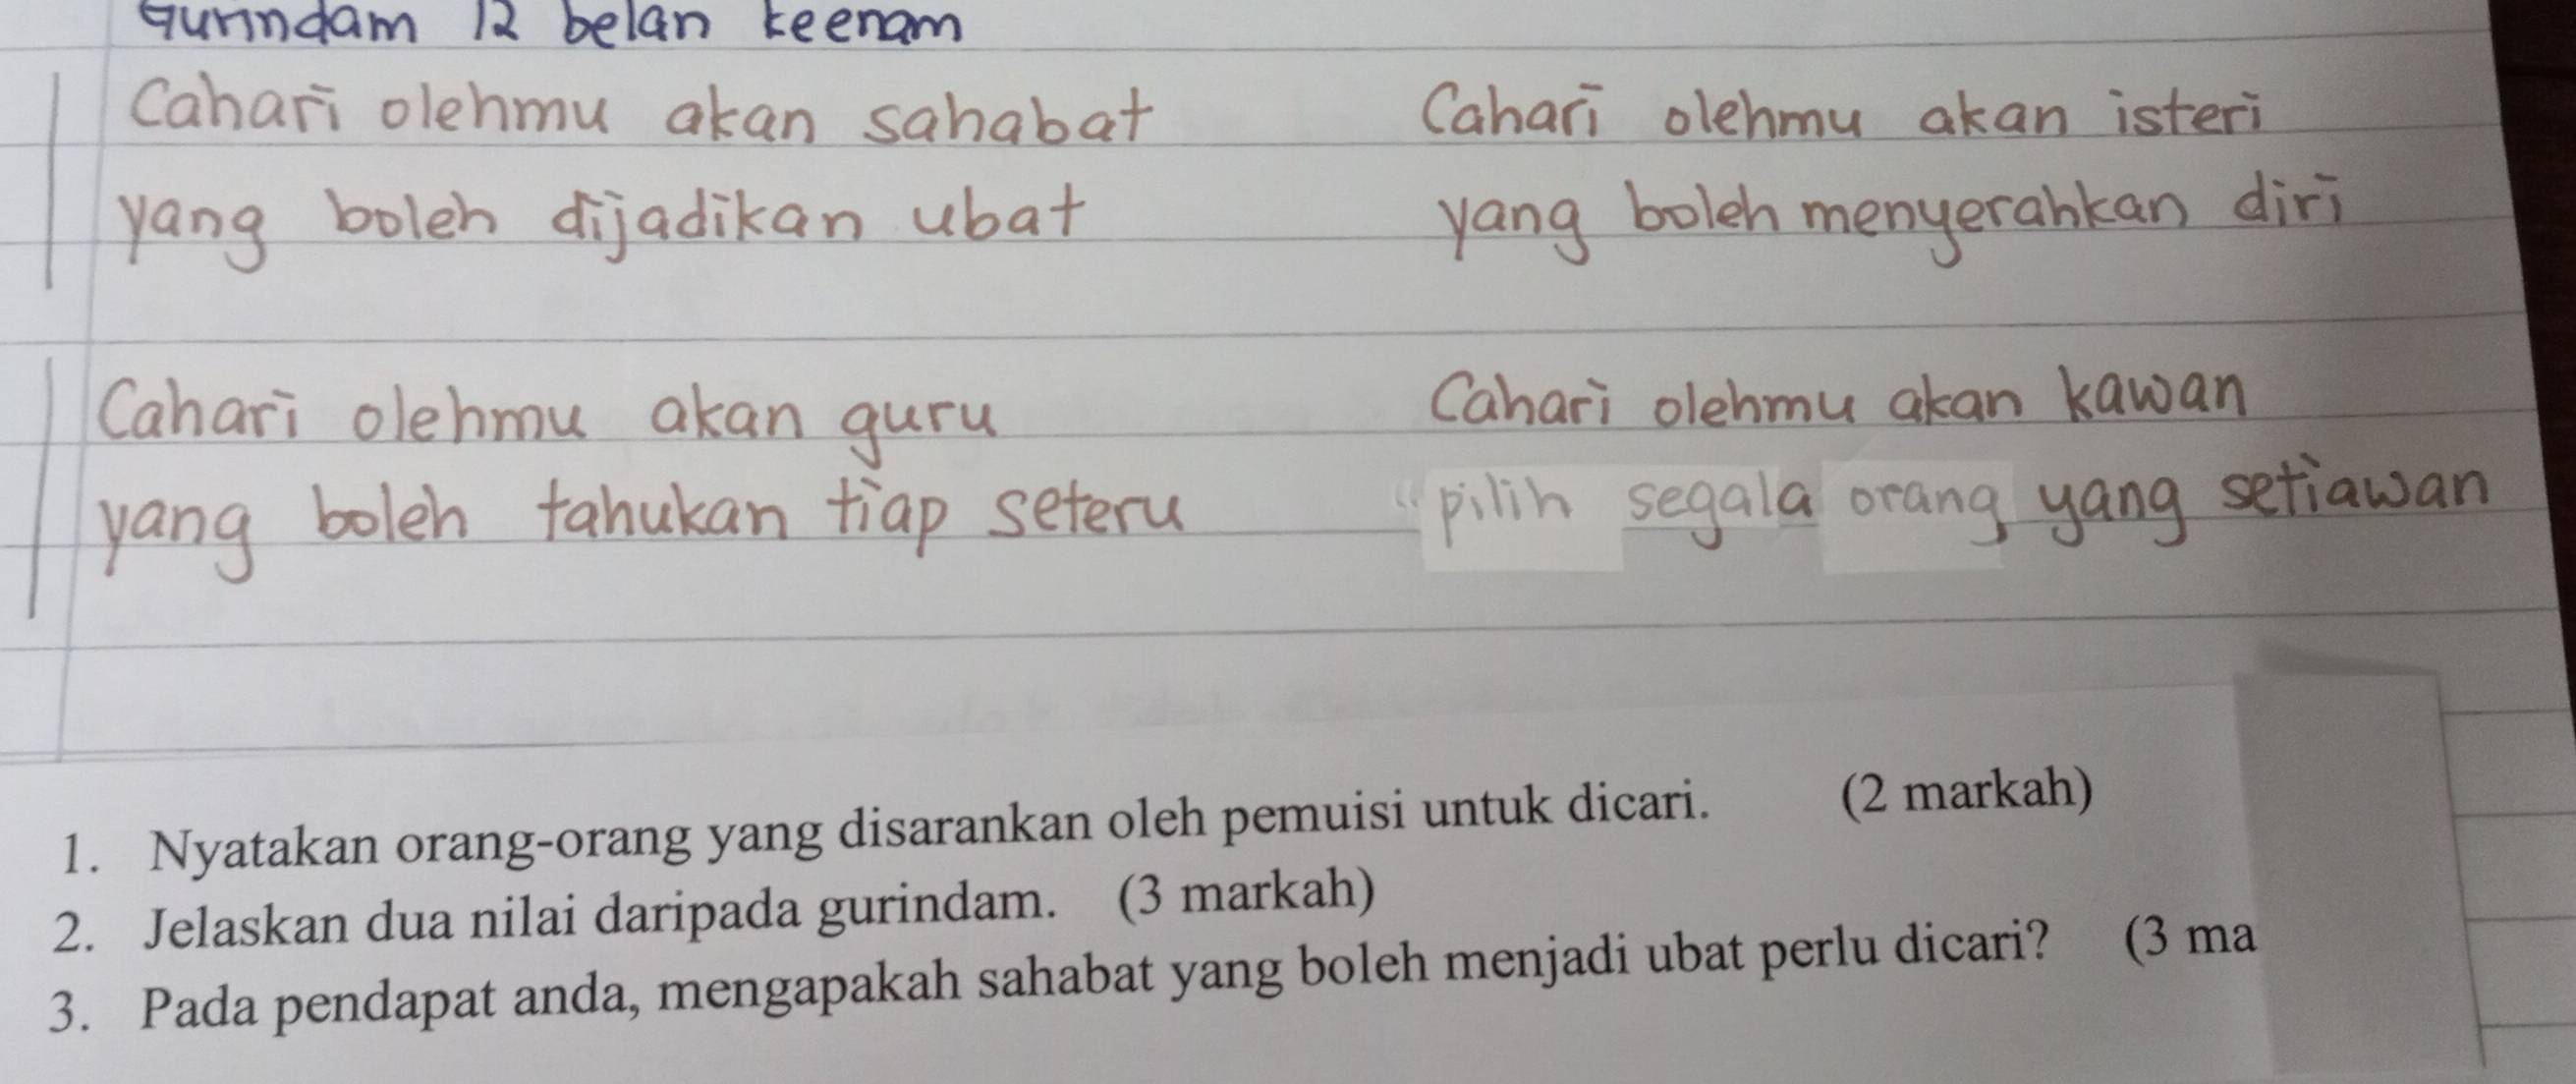 Gurindam 12 belan keenam
Cahari olehmu akan sahabat
yang boleh dijadikan ubat
Cahari olehmu akan isteri
yang boleh menyerahkan diri
Cahari olehmu akan guru
yang boleh tahukan tiap seteru
Cahari olehmu akan kawan
pilih segala orang yang setiawan
1. Nyatakan orang-orang yang disarankan oleh pemuisi untuk dicari. (2 markah)
2. Jelaskan dua nilai daripada gurindam. (3 markah)
3. Pada pendapat anda, mengapakah sahabat yang boleh menjadi ubat perlu dicari? (3 ma